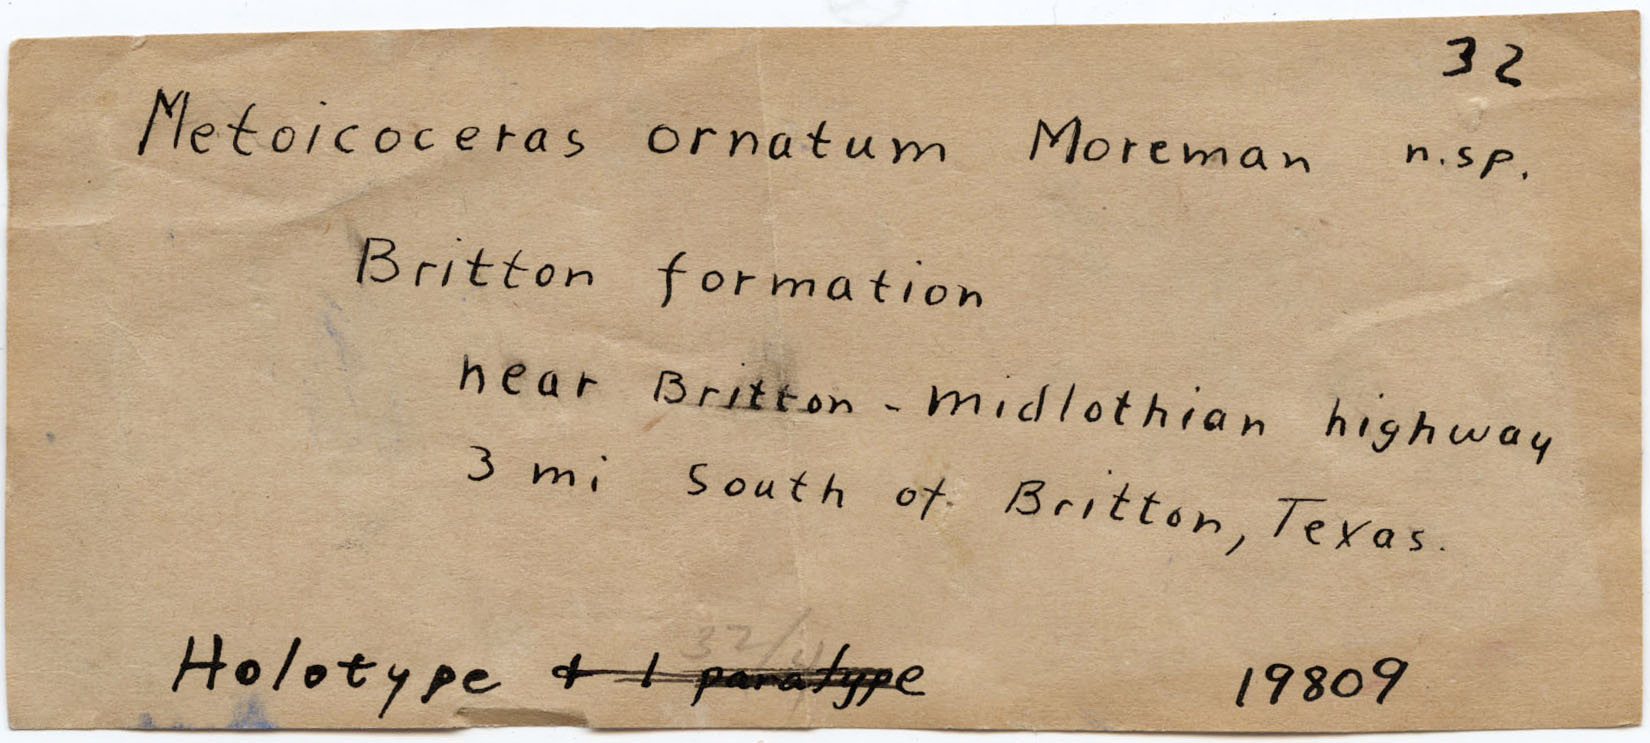 32
Metoicoceras ornatum Moreman n.sp.
Britton formation
near Britton - Midlothian highway
3 mi South of Britton, Texas.
32/4
Holotype + 1 paratype 19809